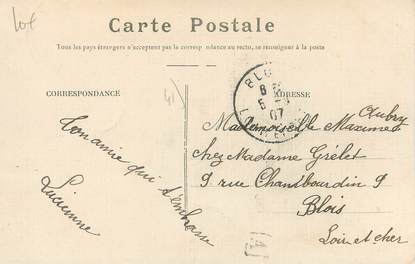 Lot
Carte Postale
Tous les pays étrangers n'acceptent pas la correspondance au recto, se renseigner à la poste
CORRESPONDANCE
ADRESSE
41)
BLOIS
07
Ton amie qui t'embrasse
Lucienne
Mademoiselle Maxime Aubry
chez Madame Grélet
9 rue Chantbourdin 9
Blois
Loir et Cher